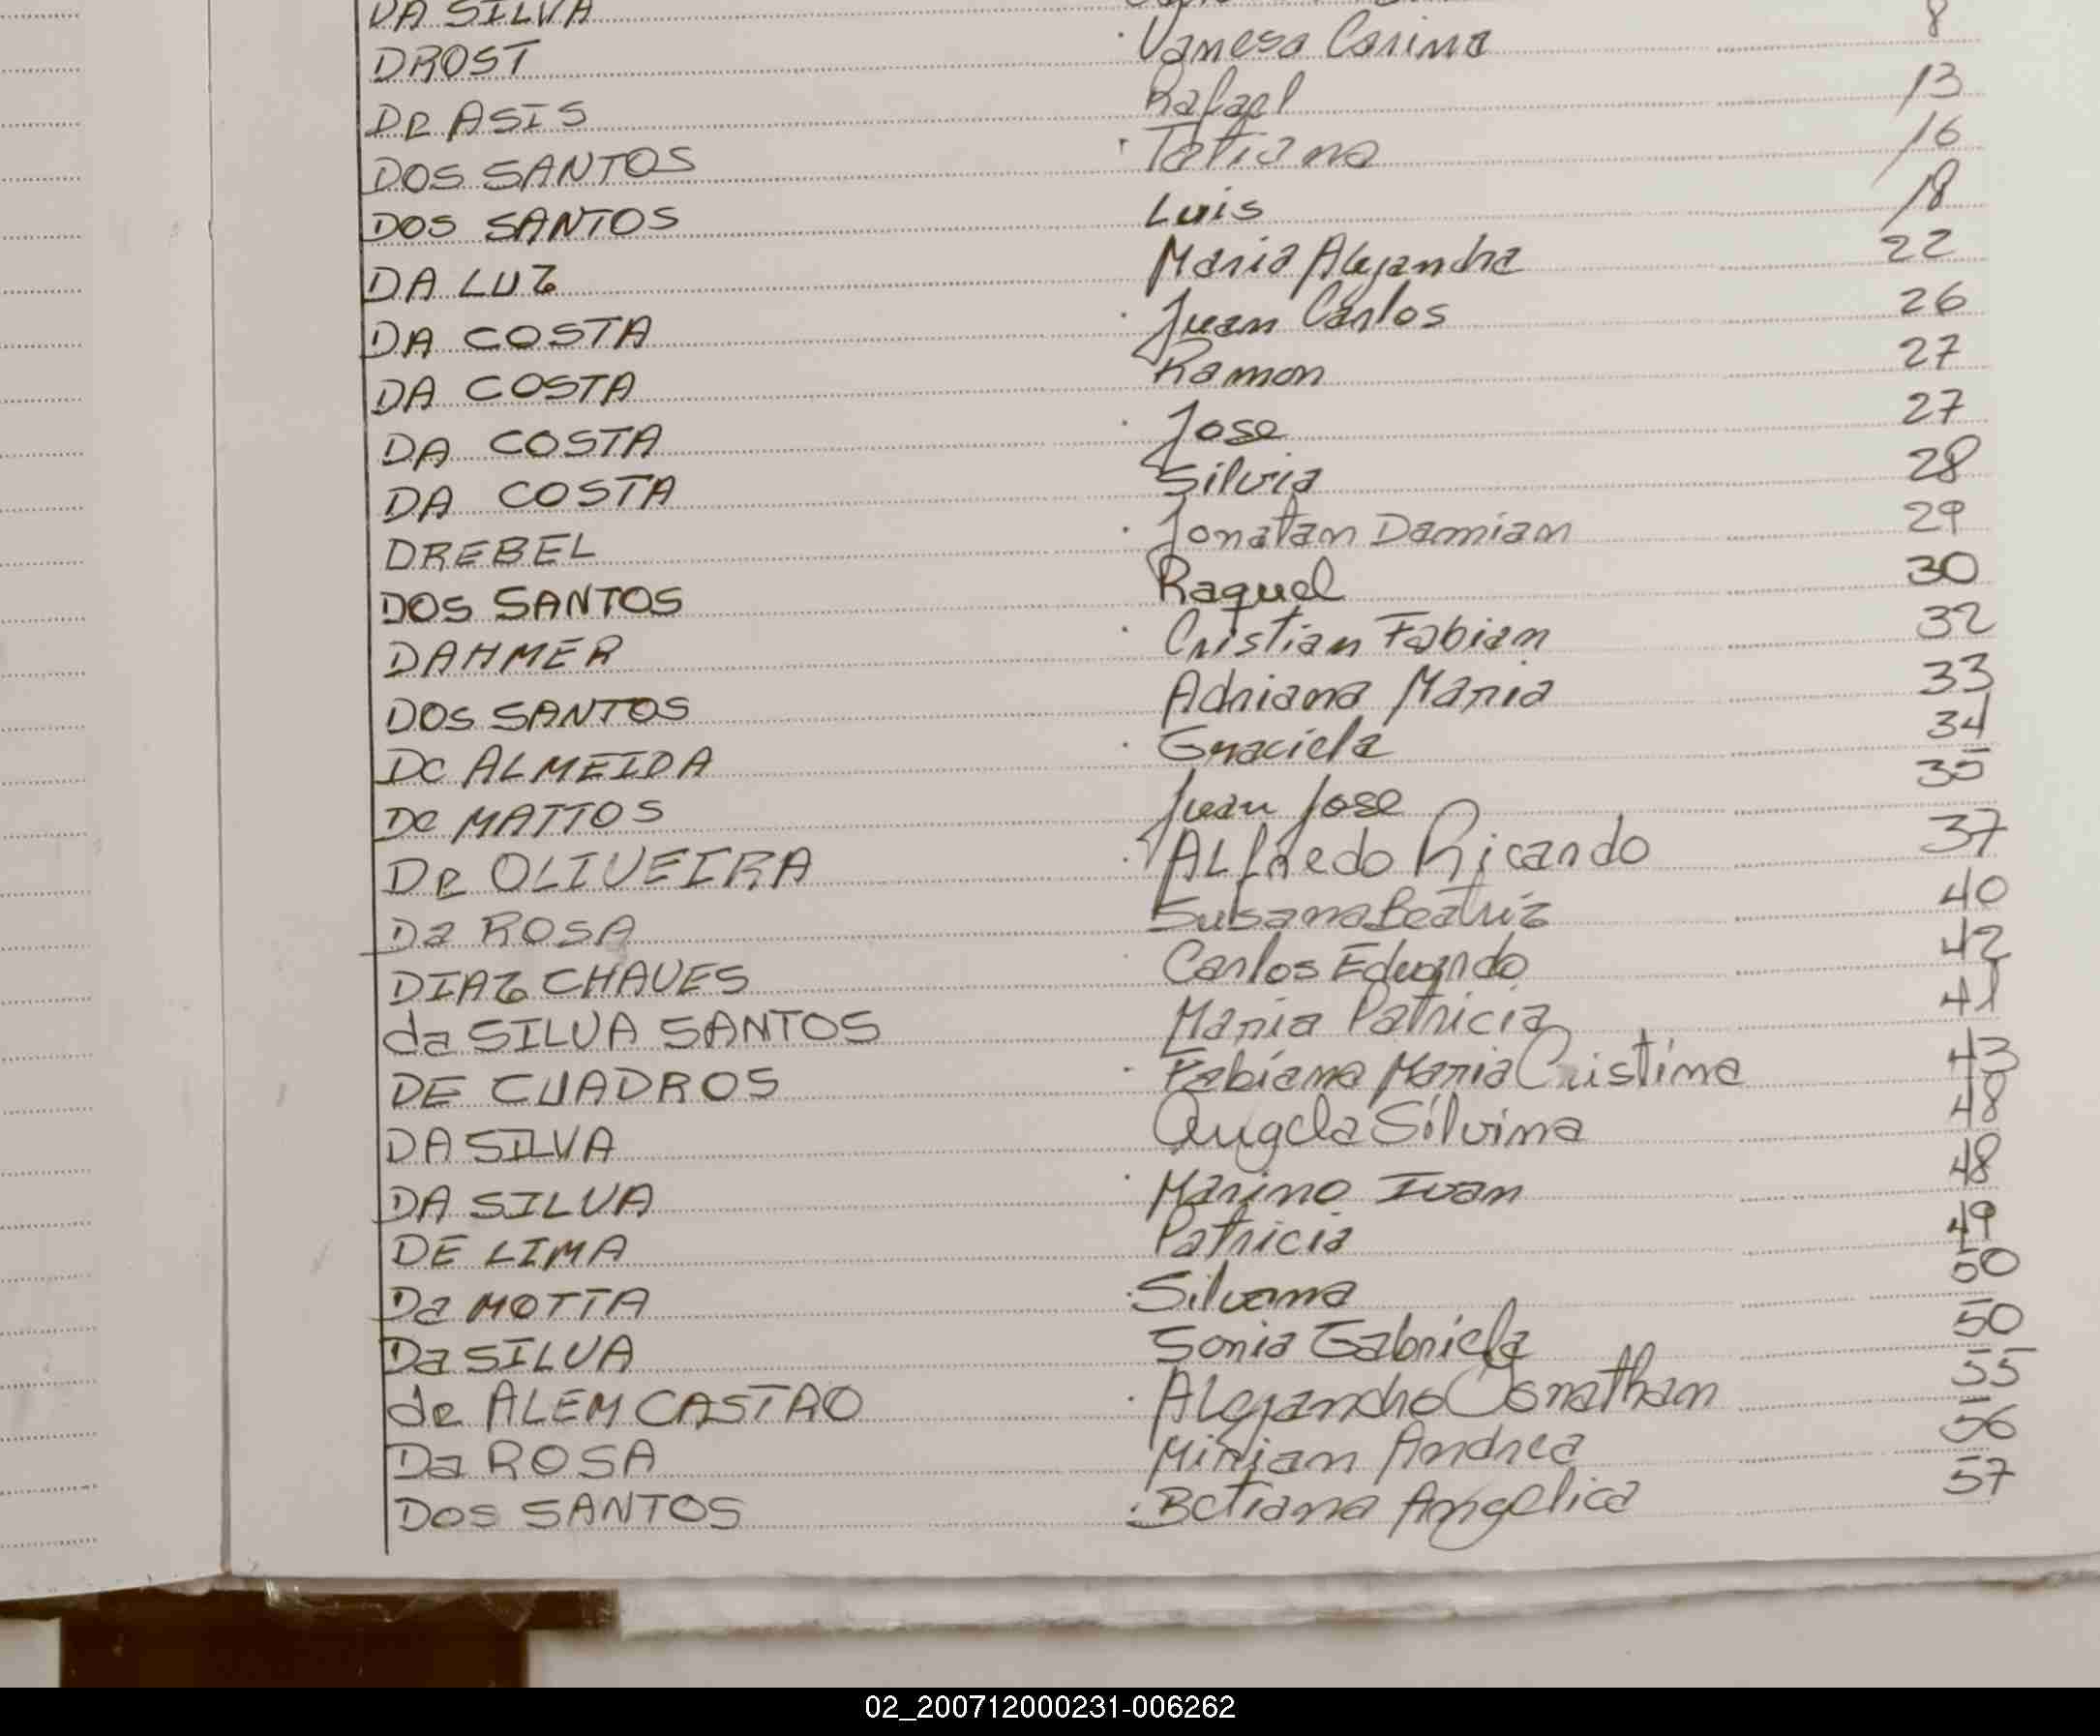 DA SILVA
DROST Vanesa Carina 8
De ASIS Rafael 13
DOS SANTOS Tatiana 16
DOS SANTOS Luis 18
DA LUZ Maria Alejandra 22
DA COSTA Juan Carlos 26
DA COSTA Ramon 27
DA COSTA Jose 27
DA COSTA Silvia 28
DREBEL Jonatan Damian 29
DOS SANTOS Raquel 30
DAHMER Cristian Fabian 32
DOS SANTOS Adriana Maria 33
De ALMEIDA Graciela 34
De MATTOS Juan Jose 35
De OLIVEIRA ALfredo Ricardo 37
Da ROSA Susana Beatriz 40
DIAZ CHAVES Carlos Eduardo 42
da SILVA SANTOS Maria Patricia 41
DE CUADROS Fabiana Maria Cristina 43
DA SILVA Angela Silvina 48
DA SILVA Marino Ivan 48
DE LIMA Patricia 49
Da MOTTA Silvana 50
Da SILVA Sonia Gabriela 50
de ALEM CASTRO Alejandro Jonathan 55
Da ROSA Miriam Andrea 56
DOS SANTOS Betiana Angelica 57
02_200712000231-006262